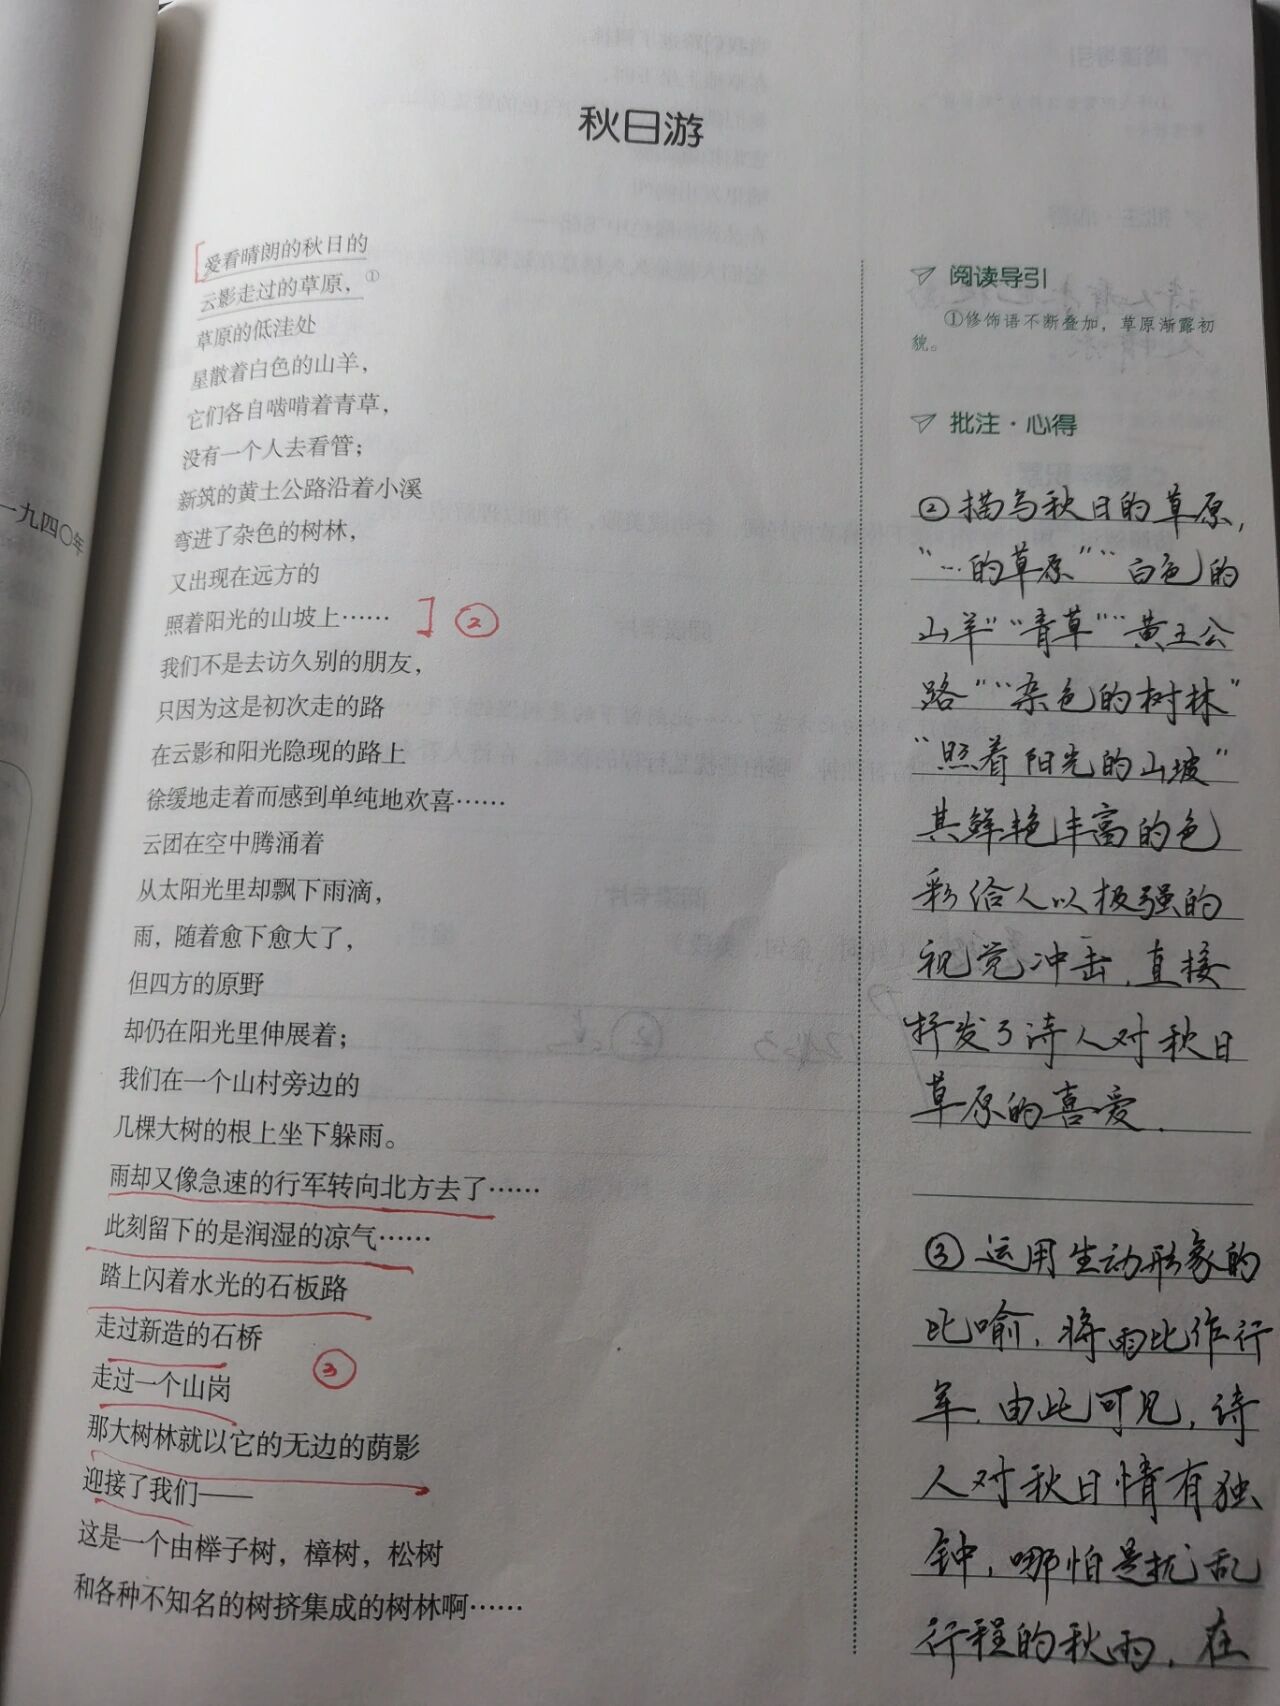 秋日游
一九四〇年
爱看晴朗的秋日的
云影走过的草原，①
草原的低洼处
星散着白色的山羊，
它们各自啮啃着青草，
没有一个人去看管；
新筑的黄土公路沿着小溪
弯进了杂色的树林，
又出现在远方的
照着阳光的山坡上……
②
我们不是去访久别的朋友，
只因为这是初次走的路
在云影和阳光隐现的路上
徐缓地走着而感到单纯地欢喜……
云团在空中腾涌着
从太阳光里却飘下雨滴，
雨，随着愈下愈大了，
但四方的原野
却仍在阳光里伸展着；
我们在一个山村旁边的
几棵大树的根上坐下躲雨。
雨却又像急速的行军转向北方去了……
此刻留下的是润湿的凉气……
踏上闪着水光的石板路
走过新造的石桥
③
走过一个山岗
那大树林就以它的无边的荫影
迎接了我们——
这是一个由榉子树，樟树，松树
和各种不知名的树挤集成的树林啊……
阅读导引
①修饰语不断叠加，草原渐露初
貌。
批注·心得
②描写秋日的草原，
“…的草原”“白色的
山羊”“青草”“黄土公
路”“杂色的树林”
“照着阳光的山坡”
其鲜艳丰富的色
彩给人以极强的
视觉冲击，直接
抒发了诗人对秋日
草原的喜爱.
③运用生动形象的
比喻，将雨比作行
军.由此可见，诗
人对秋日情有独
钟，哪怕是扰乱
行程的秋雨，在